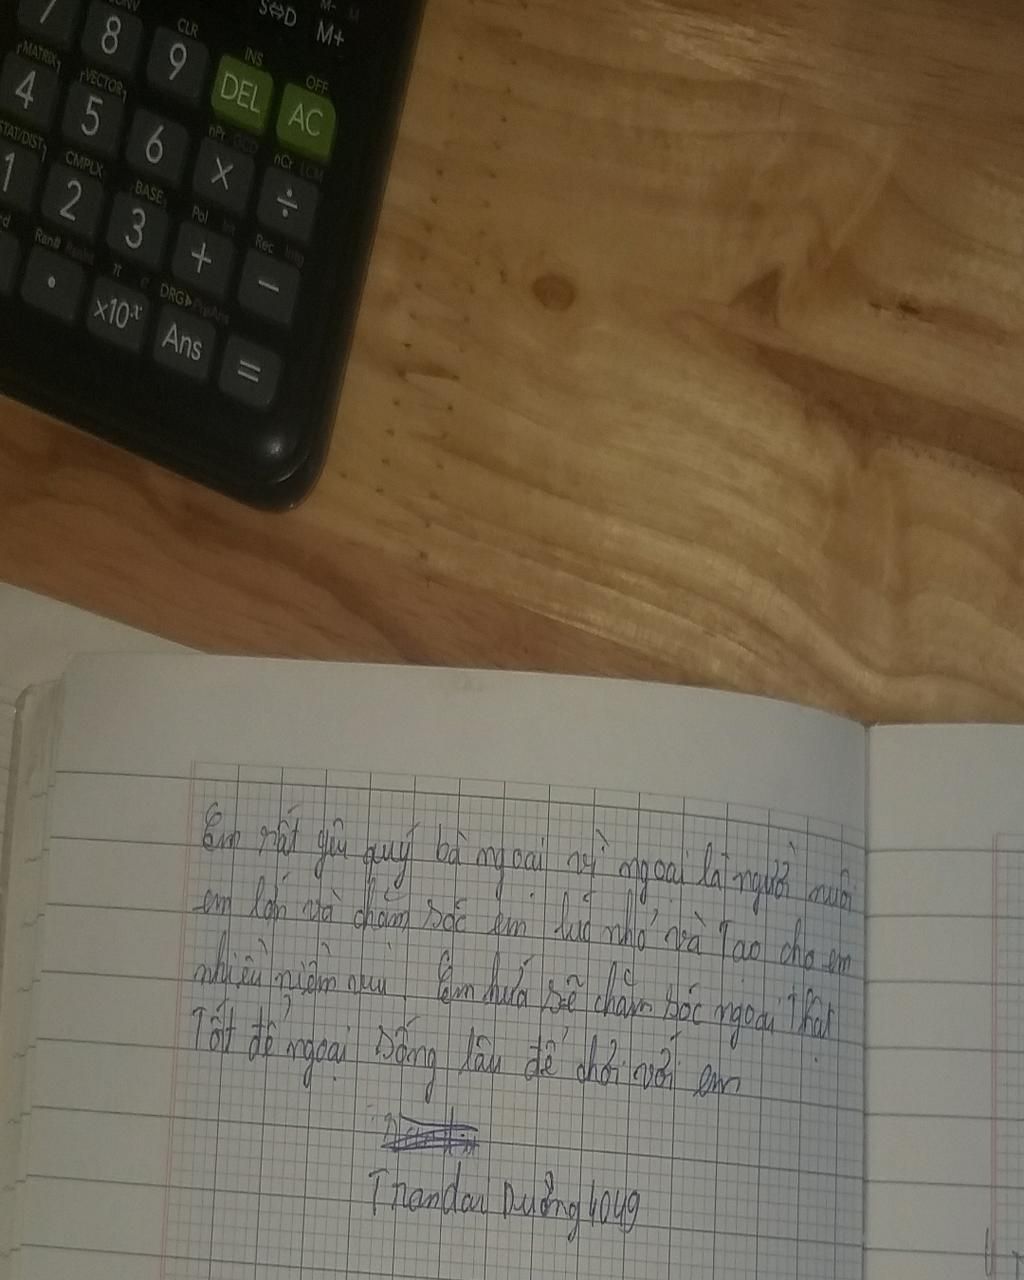 S⇔D M-
M+
7 8 CLR 9 INS DEL OFF AC
MATRIX 4 VECTOR 5 6 nPr GCD × nCr LCM ÷
STAT/DIST 1 CMPLX 2 BASE 3 Pol Int + Rec Intg −
Ran# RanInt . π e ×10ˣ DRG▶ PreAns Ans =
Em rất yêu quý bà ngoai vì ngoai là người nuôi
em lớn và chăm sóc em lúc nhỏ và Tạo cho em
nhiều niềm vui Em hứa sẽ chăm sóc ngoại Thật
Tốt để ngoại sống lâu để chơi với em